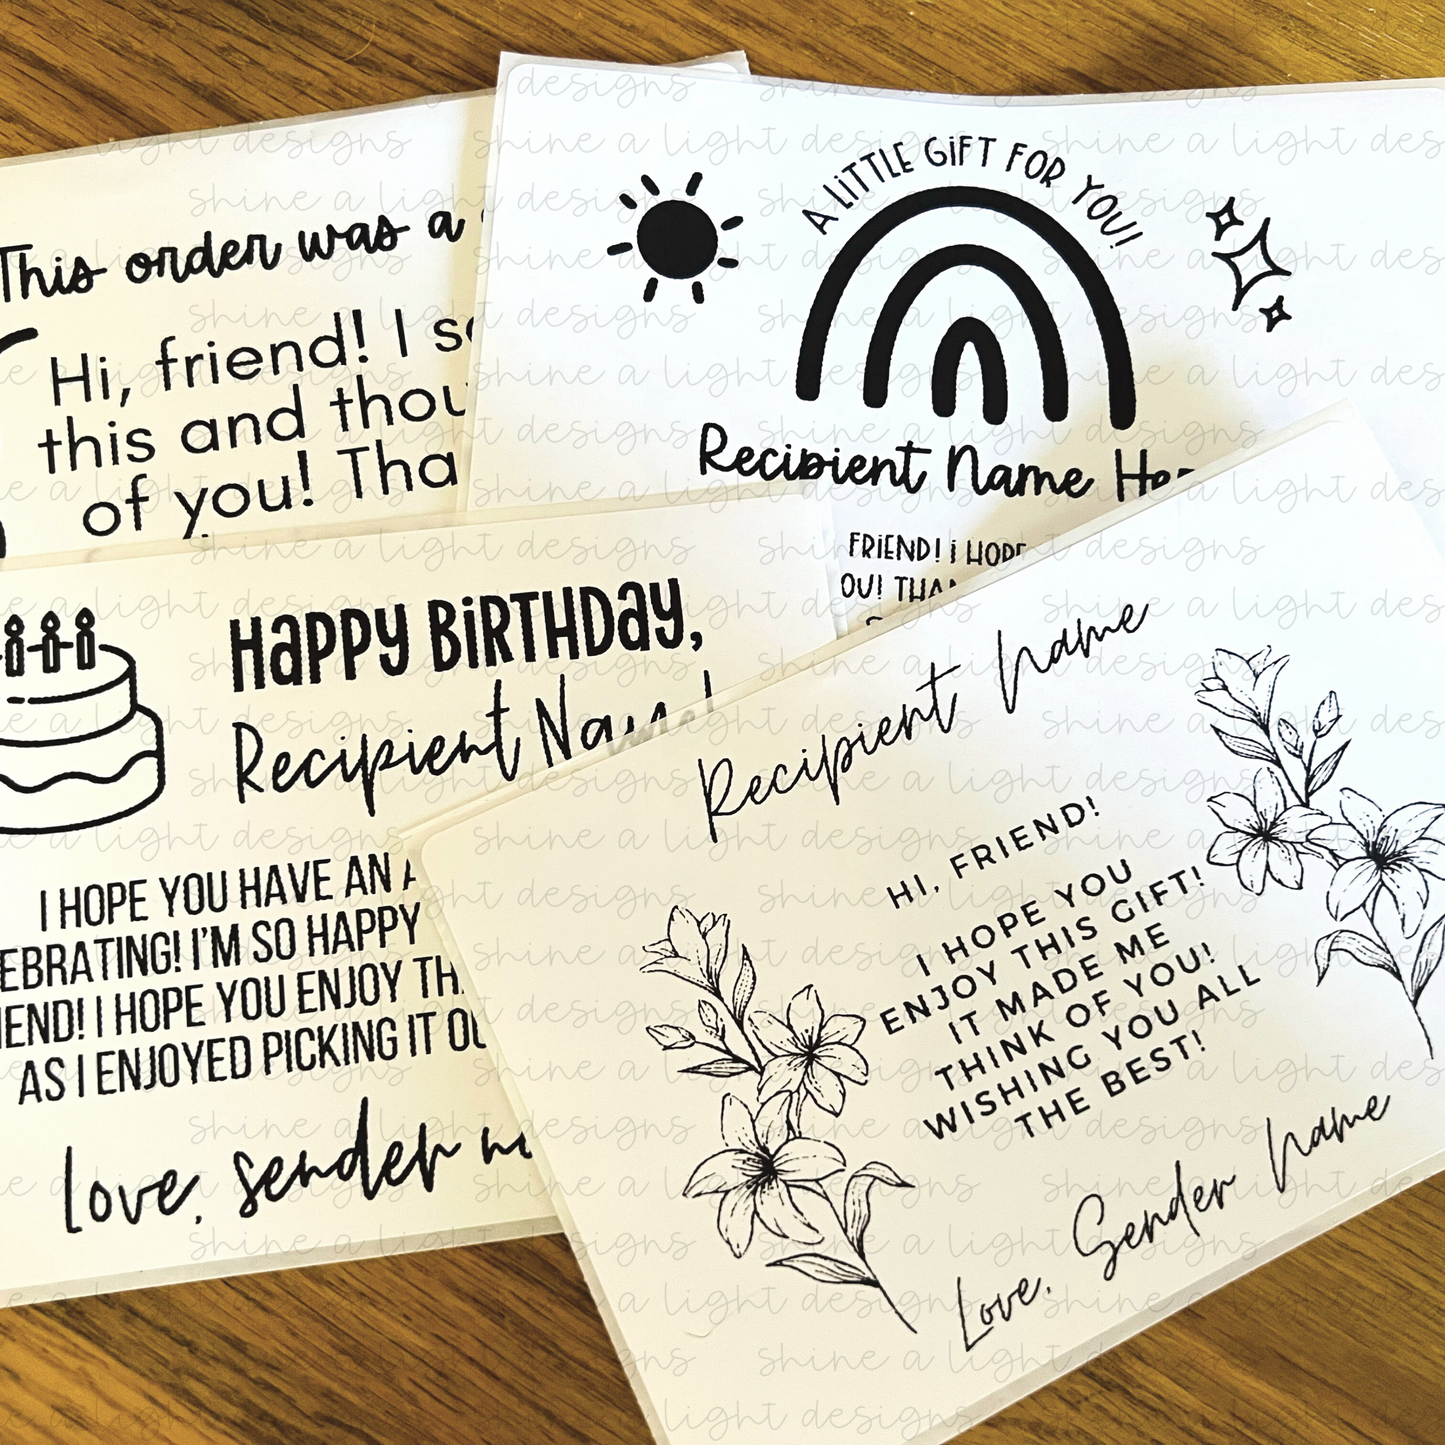 This order was a
Hi, friend! I
this and
of you!
A LiTTLE GiFT FOR YOU!
Recipient Name
FRiEND! i HOPE
OU!
HaPPY BiRTHDaY,
Recipient Name!
I HOPE YOU HAVE AN
EBRATING! I'M SO HAPPY
IEND! I HOPE YOU ENJOY
AS I ENJOYED PICKING IT
love, sender
Recipient Name
HI, FRIEND!
I HOPE YOU
ENJOY THIS GIFT!
IT MADE ME
THINK OF YOU!
WISHING YOU ALL
THE BEST!
Love, Sender Name
shine a light designs